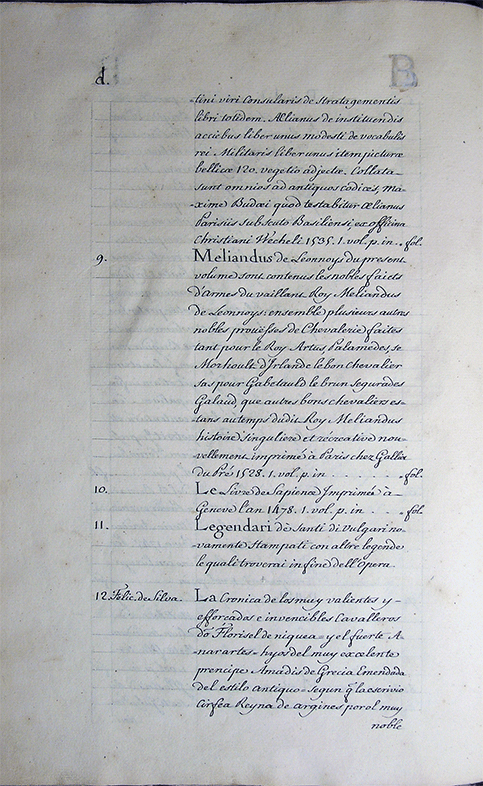 d. B
tini viri Consularis de stratagementis
libri totidem. Ælianus de instituendis
aciebus liber unus modesti de vocabulis
rei. Militaris liber unus item picturæ
bellicæ 120. vegetio adjectæ. Collata
sunt omnios ad antiquos codices, ma-
xime Budæi quod testabitur Ælianus
Parisiis sub scuto Basiliensi, ex officina
Christiani Wecheli 1535. 1. vol. p. in.. fol.
9. Meliandus de Leonnoys du present
volume sont contenus les nobles faicts
d'armes du vaillant Roy Meliandus
de Leonnoys: ensemble plusieurs autres
nobles prouësses de Chevalerie faites
tant pour le Roy Artus, Palamedes, se
Morhoult d'Irlande le bon Chevalier
sas pour Gabetauld le brun segurades
Galaud, que autres bons chevaliers es-
tans au temps dudit Roy Meliandus
histoire singuliere et récreative nou-
vellement imprimé à Paris chez Galliõ
du Pré 1528. 1. vol. p. in . . . . . fol.
10. Le Livre de Sapience Imprimée à
Geneve l'an 1478. 1. vol. p. in . . . . fol.
11. Legendari dè santi di Vulgari no-
vamente Stampati con altre legende
le quali troverai in fine dell'Opera.
12. Félic. de Silva. La Cronica de los muy valientes y
esforcados e invencibles Cavalleros
dõ Florisel de niquea y el fuerte A-
narartes hyos del muy excelente
prencipe Amadis de Grecia Emendada
del estilo antiquo segun q̃ la escrivio
Cirfea Reyna de argines por el muy
noble